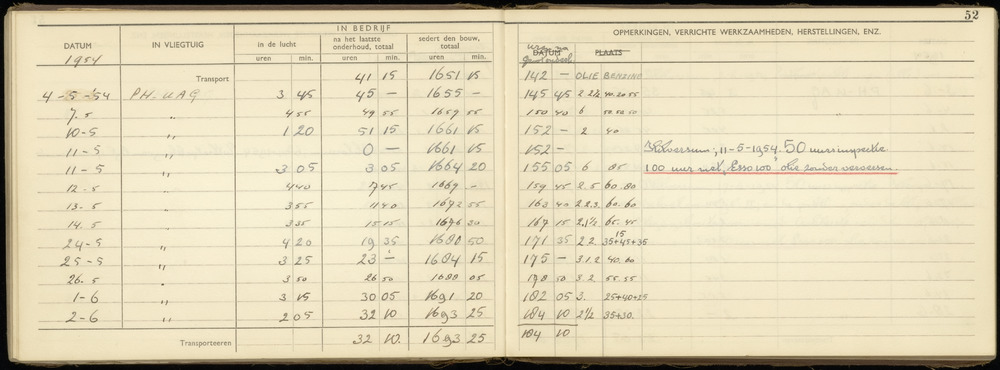 52
IN BEDRIJF
DATUM IN VLIEGTUIG in de lucht na het laatste onderhoud, totaal sedert den bouw, totaal
uren min. uren min. uren min.
DATUM PLAATS
OPMERKINGEN, VERRICHTE WERKZAAMHEDEN, HERSTELLINGEN, ENZ.
1954
Transport 41 15 1651 15 142 — OLIE BENZINE
4-5-'54 PH.UAG 3 45 45 — 1655 — 145 45 2 2½ 40.20 55
7.5 " 4 55 49 55 1659 55 150 40 6 50.50.50
10-5 " 1 20 51 15 1661 15 152 — 2 40
11-5 " 0 — 1661 15 152 — Hilversum, 11-5-1954. 50 uurs inspectie.
11-5 " 3 05 3 05 1664 20 155 05 6 85 100 uur met „Esso 100" olie zonder verversen.
12.5 " 4 40 7 45 1669 — 159 45 2.5 60.80
13.5 3 55 11 40 1672 55 163 40 2.2.3. 60.60
14.5 3 35 15 15 1676 30 167 15 2.1½ 65.45
24-5 " 4 20 19 35 1680 50 171 35 2 2 35+45+35 15
25-5 " 3 25 23 — 1684 15 175 — 3.1.2 40.60
26.5 " 3 50 26 50 1688 05 178 50 3.2 55.55
1-6 " 3 15 30 05 1691 20 182 05 3. 25+40+25
2-6 " 2 05 32 10 1693 25 184 10 2½ 35+30.
Transporteeren 32 10. 1693 25 184 10